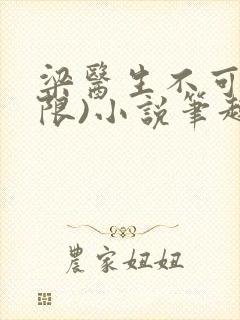 梁醫生不可
限)小說筆趣
農家妞妞